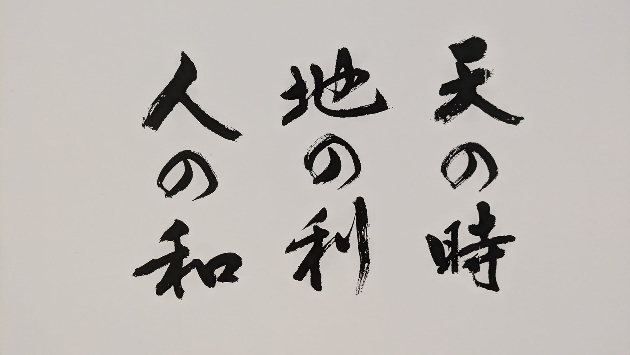 天の時
地の利
人の和